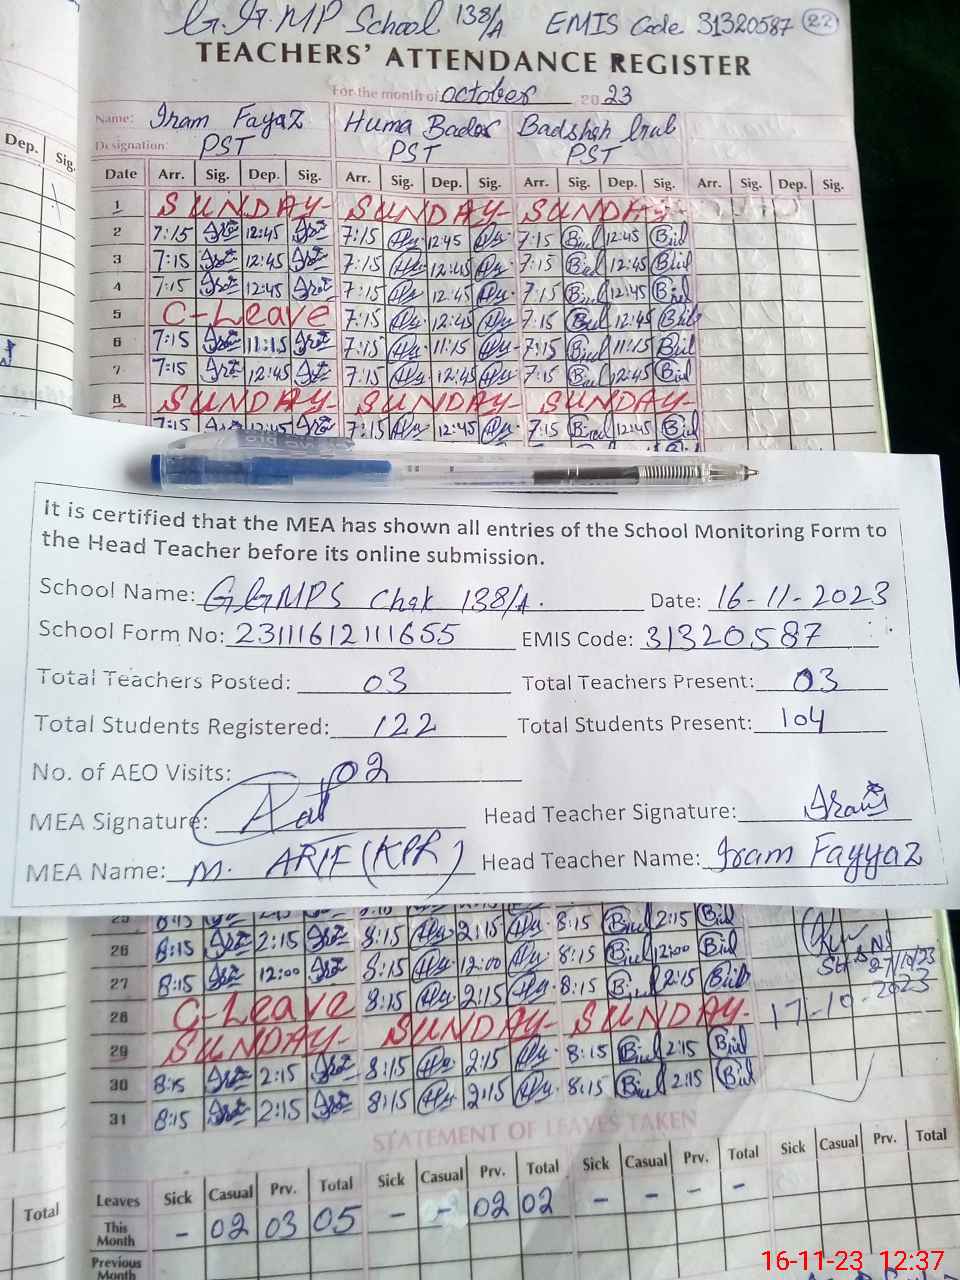 G.G.MP School 138/A EMIS Code 31320587 22
TEACHERS' ATTENDANCE REGISTER
For the month of October 2023
Name: Iram Fayaz Huma Badar Badshah
Designation: PST PST PST
Date Arr. Sig. Dep. Sig. Arr. Sig. Dep. Sig. Arr. Sig. Dep. Sig. Arr. Sig. Dep. Sig.
Dep. Sig.
1 SUNDAY- SUNDAY- SUNDAY-
2 7:15 12:45 7:15 12:45 7:15 12:45
3 7:15 12:45 7:15 12:45 7:15 12:45
4 7:15 12:45 7:15 12:45 7:15 12:45
5 C-Leave 7:15 12:45 7:15 12:45
6 7:15 11:15 7:15 11:15 7:15 11:15
7 7:15 12:45 7:15 12:45 7:15 12:45
8 SUNDAY- SUNDAY- SUNDAY-
7:15 12:45 7:15 12:45 7:15 12:45
It is certified that the MEA has shown all entries of the School Monitoring Form to
the Head Teacher before its online submission.
School Name: GGMPS Chak 138/A. Date: 16-11-2023
School Form No: 23111612111655 EMIS Code: 31320587
Total Teachers Posted: 03 Total Teachers Present: 03
Total Students Registered: 122 Total Students Present: 104
No. of AEO Visits: 02
MEA Signature: Head Teacher Signature: Iram
MEA Name: M. ARIF (KPR) Head Teacher Name: Iram Fayyaz
25 8:15 2:15 8:15 8:15 2:15
26 8:15 2:15 8:15 2:15 8:15 12:00
27 8:15 12:00 8:15 12:00 8:15 2:15
27/10/23
28 C-Leave 8:15 2:15
17-10-2023
29 SUNDAY- SUNDAY- SUNDAY-
30 8:15 2:15 8:15 2:15 8:15 2:15
31 8:15 2:15 8:15 2:15 8:15 2:15
STATEMENT OF LEAVES TAKEN
Leaves Sick Casual Prv. Total Sick Casual Prv. Total Sick Casual Prv. Total Sick Casual Prv. Total
Total
This Month - 02 03 05 - - 02 02 - - - -
Previous Month
16-11-23 12:37